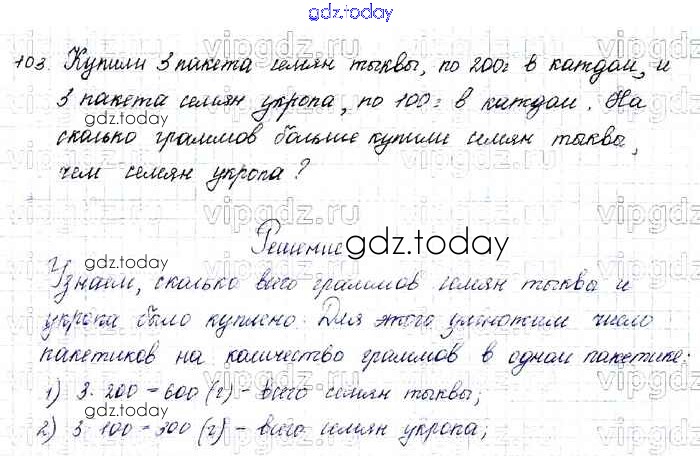 gdz.today
103. Купили 3 пакета семян тыквы, по 200г в каждом, и
3 пакета семян укропа, по 100г в каждом. На
сколько граммов больше купили семян тыквы,
чем семян укропа?
vipgdz.ru
Решение
gdz.today
Узнаем, сколько всего граммов семян тыквы и
укропа было куплено. Для этого умножим число
пакетиков на количество граммов в одном пакетике:
1) 3·200=600 (г) - всего семян тыквы;
gdz.today
2) 3·100=300 (г) - всего семян укропа;